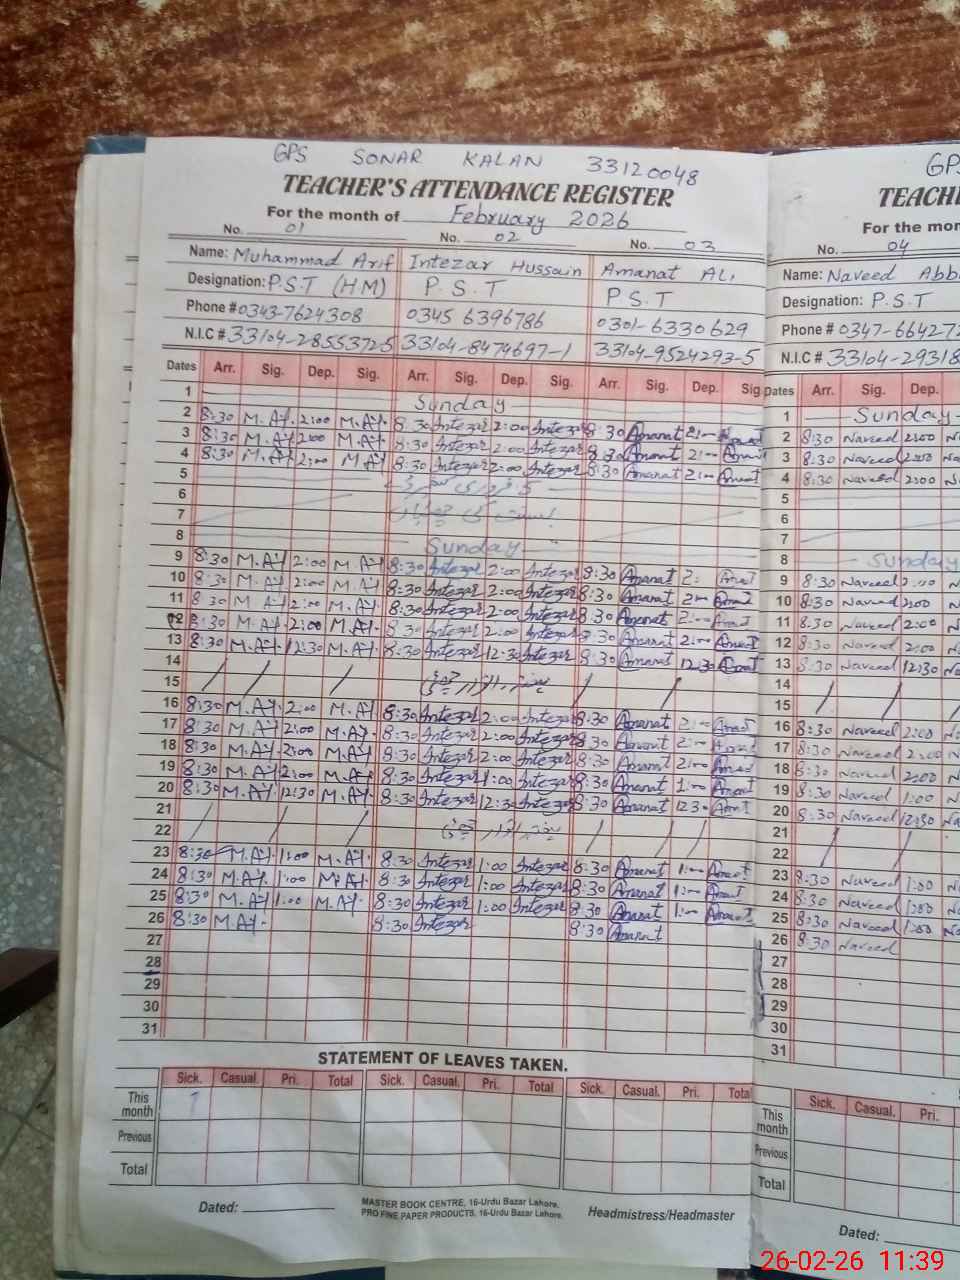 GPS SONAR KALAN 33120048
TEACHER'S ATTENDANCE REGISTER
For the month of February 2026
No. 01 No. 02 No. 03
Name: Muhammad Arif Intezar Hussain Amanat ALi
Designation: P.S.T (HM) P.S.T P.S.T
Phone # 0343-7624308 0345 6396786 0301-6330629
N.I.C # 33104-2855372-5 33104-8474697-1 33104-9524293-5
Dates Arr. Sig. Dep. Sig. Arr. Sig. Dep. Sig. Arr. Sig. Dep. Sig
1 Sunday
2 8:30 M.Af. 2:00 M.Af 8:30 Intezar 2:00 Intezar 8:30 Amanat 2:00
3 8:30 M.Af 2:00 M.Af 8:30 Intezar 2:00 Intezar 8:30 Amanat 2:00 Amanat
4 8:30 M.Af 2:00 M.Af 8:30 Intezar 2:00 Intezar 8:30 Amanat 2:00 Amanat
5
6
7
8 Sunday
9 8:30 M.Af 2:00 M.Af 8:30 Intezar 2:00 Intezar 8:30 Amanat 2: Amanat
10 8:30 M.Af 2:00 M.Af 8:30 Intezar 2:00 Intezar 8:30 Amanat 2:00 Amanat
11 8:30 M.Af 2:00 M.Af 8:30 Intezar 2:00 Intezar 8:30 Amanat 2:00 Amanat
12 8:30 M.Af 2:00 M.Af 8:30 Intezar 2:00 Intezar 8:30 Amanat 2:00 Amanat
13 8:30 M.Af 12:30 M.Af 8:30 Intezar 12:30 Intezar 8:30 Amanat 12:30 Amanat
14
15
16 8:30 M.Af 2:00 M.Af 8:30 Intezar 2:00 Intezar 8:30 Amanat 2:00 Amanat
17 8:30 M.Af 2:00 M.Af 8:30 Intezar 2:00 Intezar 8:30 Amanat 2:00 Amanat
18 8:30 M.Af 2:00 M.Af 8:30 Intezar 2:00 Intezar 8:30 Amanat 2:00 Amanat
19 8:30 M.Af 2:00 M.Af 8:30 Intezar 1:00 Intezar 8:30 Amanat 1:00 Amanat
20 8:30 M.Af 12:30 M.Af 8:30 Intezar 12:30 Intezar 8:30 Amanat 12:30 Amanat
21
22
23 8:30 M.Af 1:00 M.Af 8:30 Intezar 1:00 Intezar 8:30 Amanat 1:00 Amanat
24 8:30 M.Af 1:00 M.Af 8:30 Intezar 1:00 Intezar 8:30 Amanat 1:00 Amanat
25 8:30 M.Af 1:00 M.Af 8:30 Intezar 1:00 Intezar 8:30 Amanat 1:00 Amanat
26 8:30 M.Af 8:30 Intezar 8:30 Amanat
27
28
29
30
31
STATEMENT OF LEAVES TAKEN.
Sick. Casual. Pri. Total Sick. Casual. Pri. Total Sick. Casual. Pri. Total
This month 1
Previous
Total
Dated:
MASTER BOOK CENTRE, 16-Urdu Bazar Lahore.
PRO FINE PAPER PRODUCTS, 16-Urdu Bazar Lahore.
Headmistress/Headmaster
GPS
TEACH
For the mon
No. 04
Name: Naveed Abb
Designation: P.S.T
Phone # 0347-6642-72
N.I.C # 33104-29318
Dates Arr. Sig. Dep.
1 Sunday
2 8:30 Naveed 2:00
3 8:30 Naveed 2:00
4 8:30 Naveed 2:00
5
6
7
8 Sunday
9 8:30 Naveed 2:00
10 8:30 Naveed 2:00
11 8:30 Naveed 2:00
12 8:30 Naveed 2:00
13 8:30 Naveed 12:30
14
15
16 8:30 Naveed 2:00
17 8:30 Naveed 2:00
18 8:30 Naveed 2:00
19 8:30 Naveed 1:00
20 8:30 Naveed 12:30
21
22
23 8:30 Naveed 1:00
24 8:30 Naveed 1:00
25 8:30 Naveed 1:00
26 8:30 Naveed
27
28
29
30
31
Sick. Casual. Pri.
This month
Previous
Total
Dated:
26-02-26 11:39